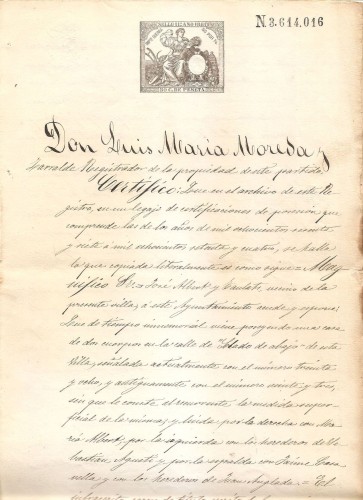 N.3.614.016
SELLO 11º AÑO 1880
50 C. DE PESETA
Don Luis Maria Moreda y
Registrador de la propiedad de este partido
Certifico: Que en el archivo de este Re
gistro, en un legajo de certificaciones de posesion que
comprende las de los años de mil ochocientos sesenta
y siete á mil ochocientos setenta y cuatro, se halla
la que copiada literalmente es como sigue: Mag
nifico Sr: José Albert y vecino de la
presente villa, á este Ayuntamiento acude y espone:
Que de tiempo inmemorial viene poseyendo una casa
de dos cuerpos en la calle de de abajo" de esta
villa, señalada actualmente con el número treinta
y ocho, y antiguamente con el número veinte y tres,
sin que le conste al recurrente la medida super
ficial de la misma; y linda por la derecha con Ma
ria Albert, por la izquierda con los herederos de Se
bastian Agusti y por la espalda con Jaime
y con los herederos de Juan = El